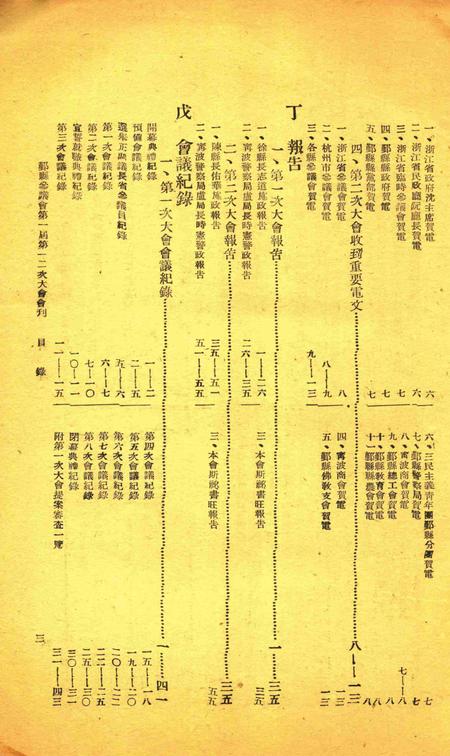 一、浙江省政府沈主席賀電 六
二、浙江省民政廳阮廳長賀電 六
三、浙江省臨時參議會賀電 七
四、鄞縣縣政府賀電 七
五、鄞縣縣黨部賀電 七
六、三民主義青年團鄞縣分團賀電 七
七、鄞縣警察局賀電 七
八、甯波商會賀電 七——八
九、鄞縣總工會賀電 八
十、鄞縣教育會賀電 八
十一、鄞縣縣農會賀電 八
四、第二次大會收到重要電文 八——一三
一、浙江省參議會賀電 八
二、杭州市參議會賀電 八——九
三、各縣參議會賀電 九——一三
四、甯波商會賀電 一三
五、鄞縣佛教支會賀電 一三
丁 報告
一、第一次大會報告 一——三五
一、徐縣長志道施政報告 一——二六
二、甯波警察局盧局長時憲警政報告 二六——三五
三、本會斯祕書旺報告 三五
二、第二次大會報告 三五
一、陳縣長佑華施政報告 三五——五一
二、甯波警察局盧局長時憲警政報告 五一——五五
三、本會斯祕書旺報告 五五
戊 會議紀錄
一、第一次大會會議紀錄 一——四一
開幕典禮紀錄 一——二
預備會議紀錄 二——五
選舉正副議長省參議員紀錄 五——六
第一次會議紀錄 六——七
第二次會議紀錄 七——一〇
宣誓就職典禮紀錄 一〇——一一
第三次會議紀錄 一二——一五
第四次會議紀錄 一五——一八
第五次會議紀錄 一九——二〇
第六次會議紀錄 二〇——二二
第七次會議紀錄 二二——二五
第八次會議紀錄 二五——三〇
閉幕典禮紀錄 三〇——三一
附第一次大會提案審查一覽 三一——四三
鄞縣參議會第一屆第一二次大會會刊 目錄 三